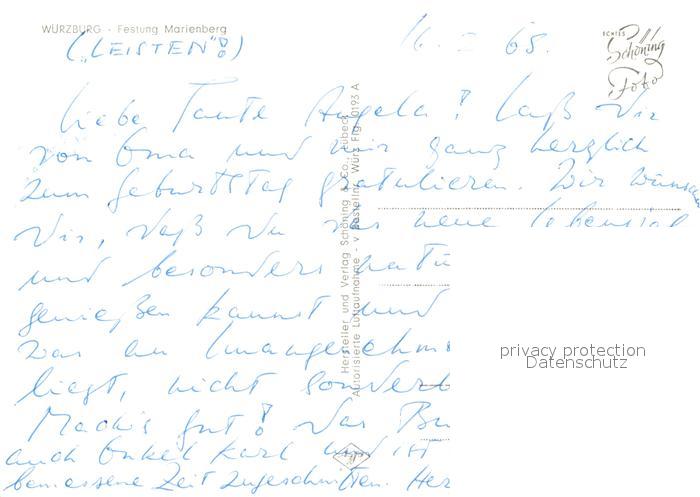 WÜRZBURG - Festung Marienberg
("LEISTEN"!)
65.
ECHTES
Schöning
Foto
Liebe Tante Angela! Laß Dir
von Oma und mir ganz herzlich
zum Geburtstag gratulieren. Wir wünschen
Dir, daß Du das neue Lebensja
und besonders
genießen kannst und
was an Unangenehm
liegt, nicht sonderl
Mach's gut! Das
auch Onkel Karl und ist
bemessene Zeit zugeschnitten. Her
Hersteller und Verlag Schöning & Co., Lübeck
Autorisierte Luftaufnahme - v. Bestellnr. Würz Flg. 0193 A
privacy protection
Datenschutz